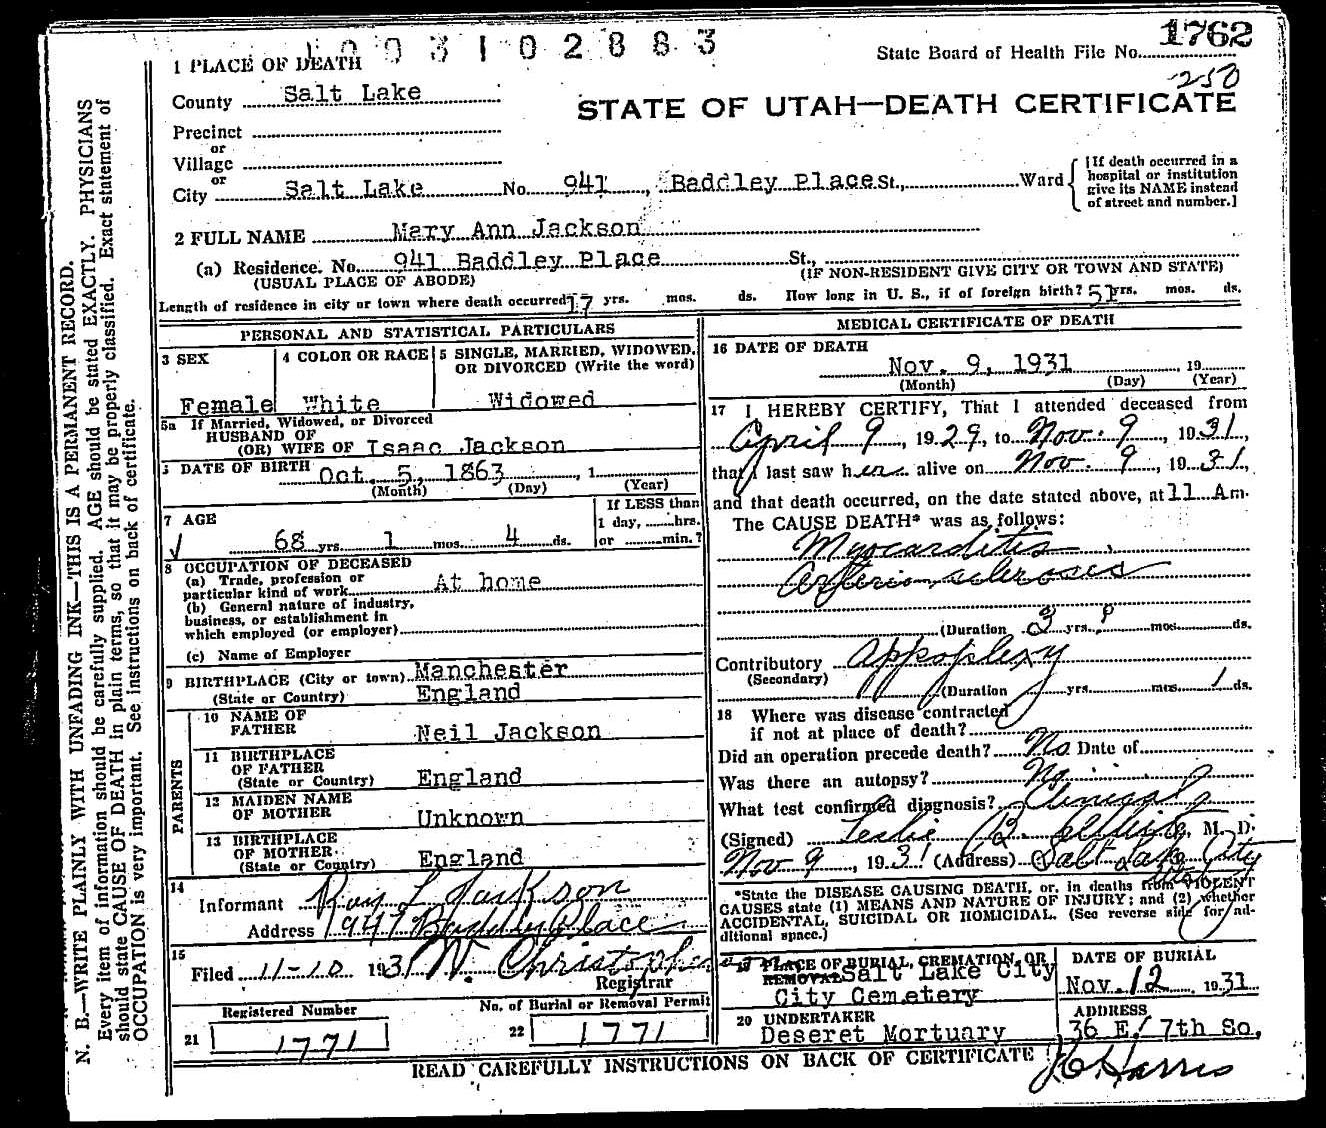 1003102883
State Board of Health File No. 1762
250
1 PLACE OF DEATH
County Salt Lake
STATE OF UTAH—DEATH CERTIFICATE
Precinct
or
Village
or
City Salt Lake No. 941, Baddley Place St., Ward
[If death occurred in a
hospital or institution
give its NAME instead
of street and number.]
2 FULL NAME Mary Ann Jackson
(a) Residence. No. 941 Baddley Place St.,
(USUAL PLACE OF ABODE) (IF NON-RESIDENT GIVE CITY OR TOWN AND STATE)
Length of residence in city or town where death occurred 17 yrs. mos. ds. How long in U. S., if of foreign birth? 51 yrs. mos. ds.
PERSONAL AND STATISTICAL PARTICULARS
3 SEX
Female
4 COLOR OR RACE
White
5 SINGLE, MARRIED, WIDOWED,
OR DIVORCED (Write the word)
Widowed
5a If Married, Widowed, or Divorced
HUSBAND OF
(OR) WIFE OF Isaac Jackson
DATE OF BIRTH Oct. 5, 1863, 1
(Month) (Day) (Year)
7 AGE
68 yrs. 1 mos. 4 ds.
If LESS than
1 day, hrs.
or min.?
8 OCCUPATION OF DECEASED
(a) Trade, profession or
particular kind of work At home
(b) General nature of industry,
business, or establishment in
which employed (or employer)
(c) Name of Employer
9 BIRTHPLACE (City or town) Manchester
(State or Country) England
PARENTS
10 NAME OF
FATHER Neil Jackson
11 BIRTHPLACE
OF FATHER
(State or Country) England
12 MAIDEN NAME
OF MOTHER Unknown
13 BIRTHPLACE
OF MOTHER
(State or Country) England
14
Informant Roy L Jackson
Address 941 Baddley Place
15
Filed 11-10 1931 W. Christopherson
Registrar
Registered Number
21 1771
No. of Burial or Removal Permit
22 1771
MEDICAL CERTIFICATE OF DEATH
16 DATE OF DEATH
Nov. 9, 1931 19
(Month) (Day) (Year)
17 I HEREBY CERTIFY, That I attended deceased from
April 9, 1929, to Nov. 9, 1931,
that I last saw her alive on Nov. 9, 1931,
and that death occurred, on the date stated above, at 11 Am.
The CAUSE DEATH* was as follows:
Myocarditis
Arterio-sclerosis
(Duration 3 yrs. mos. ds.
Contributory Appoplexy
(Secondary)
(Duration yrs. mos. 1 ds.
18 Where was disease contracted
if not at place of death?
Did an operation precede death? No Date of
Was there an autopsy? No
What test confirmed diagnosis?
(Signed) Leslie B. M. D.
Nov 9, 1931 (Address) Salt Lake City
*State the DISEASE CAUSING DEATH, or, in deaths from VIOLENT
CAUSES state (1) MEANS AND NATURE OF INJURY; and (2) whether
ACCIDENTAL, SUICIDAL OR HOMICIDAL. (See reverse side for ad-
ditional space.)
19 PLACE OF BURIAL, CREMATION, OR
REMOVAL Salt Lake City
City Cemetery
DATE OF BURIAL
Nov. 12, 1931
20 UNDERTAKER
Deseret Mortuary
ADDRESS
36 E. 7th So.
READ CAREFULLY INSTRUCTIONS ON BACK OF CERTIFICATE
Harris
N. B.—WRITE PLAINLY WITH UNFADING INK—THIS IS A PERMANENT RECORD.
Every item of information should be carefully supplied. AGE should be stated EXACTLY. PHYSICIANS
should state CAUSE OF DEATH in plain terms, so that it may be properly classified. Exact statement of
OCCUPATION is very important. See instructions on back of certificate.